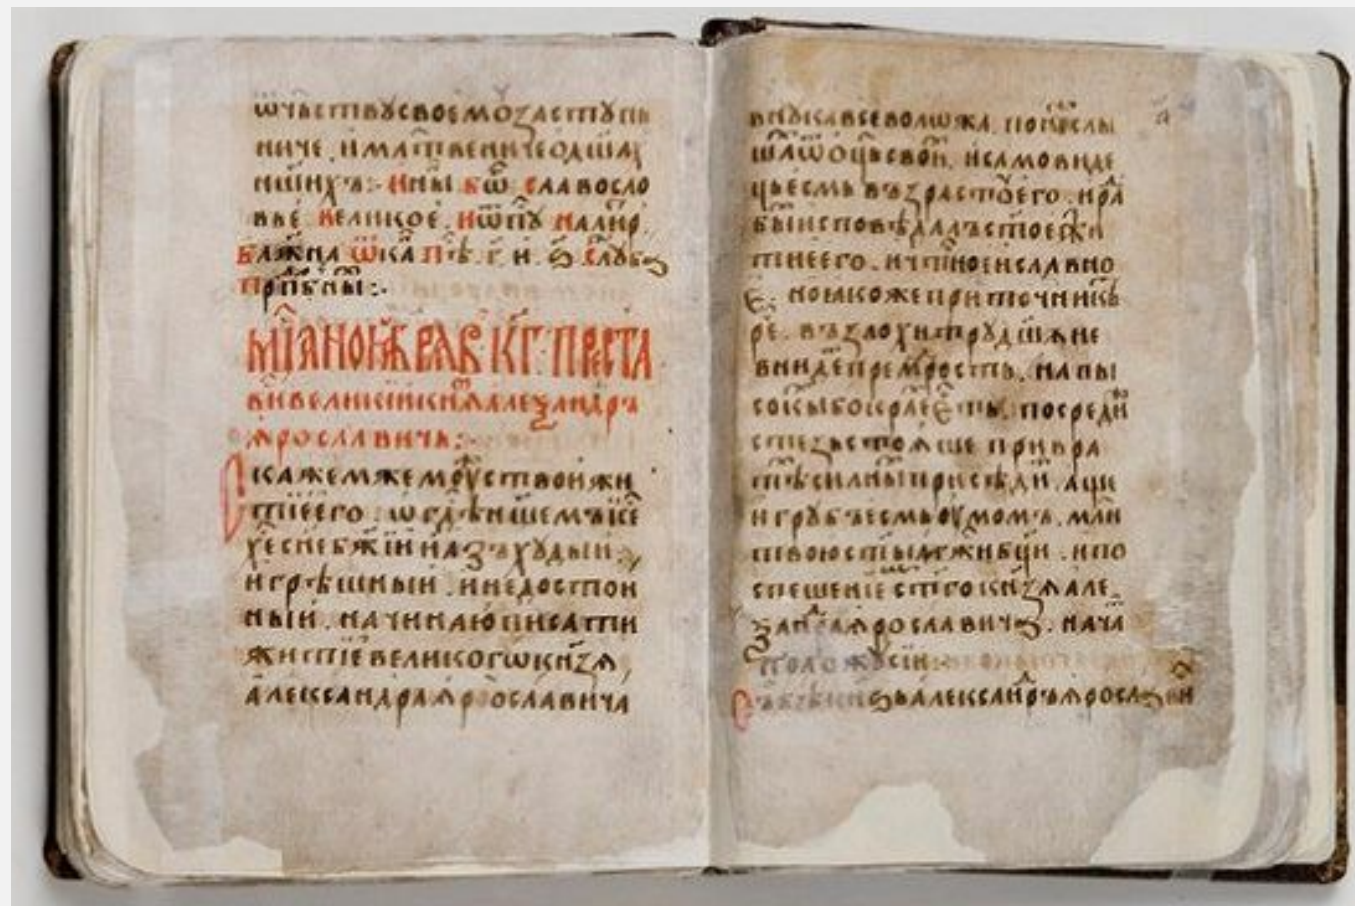 ѿчьствꙋ своемꙋ застꙋпн
ниче. и мл҃твениче ѡ дш҃ах
нших:· Нн҃ѣ бѿ. славосло
вье великое. и ѿпꙋ
Блж҃на
прпⷣбны:·
Мⷭ҇ца ноѧбрѧ в҃ к҃г преста
ви великии кнѧз҃ алеѯандръ
ꙗрославичь:·
Скажем же мꙋжство и жи
тїе его. ѡ гⷭ҇ѣ ншем їсе
хе сн҃е бж҃їи. аз хꙋдыи.
и грѣшныи. и недостои
ныи. начинаю писати
житїе великогѡ кнз҃ѧ,
александра ꙗрославича
внꙋка всеволѡжа. понⷤе слы
шах ѿ ѡц҃ь свои. и самовиде
ць есмь възраста его. и рад
бы исповѣдалъ ст҃ое
тїе его. и чⷭ҇тное и славно
е. но ꙗкоже приточник
ре. въ злохитрꙋ дш҃ꙋ не
вниде премⷣрость. на вы
соки бо краех есть. посреди
стезь стоꙗше при вра
тѣх силных присѣди. аще
и грꙋбъ есмь ꙋмомъ. мл҃и
твою ст҃ыꙗ бц҃и. и по
спешенїе ст҃го кнз҃ѧ але
ѯанⷣра ꙗрославич. нача
положꙋ сии
александръ ꙗрослави